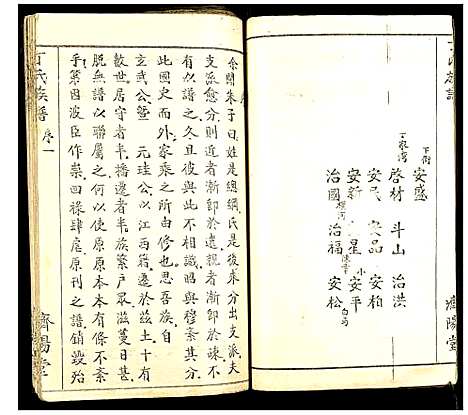 丁氏族譜
下衖
安盛
丁家灣
啓材 斗山 治洪
安民 安品 安柏
安新 星 小 安平
治國 治福 安松
濟陽堂
序
余聞朱子曰姓是總綱氏是後來分出支派夫
支派愈分則近者漸卽於遠親者漸卽於疎不
有以譜之久且貌也不相識昭與穆紊其分
此國史而外家乘之所由修也思吾族自
玄武公暨 元珪公以江西籍遷於茲土十有
數世居守者半播遷者半族繁戶衆滋蔓日甚
脫無譜以聯屬之何以使原原本本有條不紊
乎第因波臣作祟囘祿肆虐原刊之譜銷毀殆
丁氏族譜 序 一
濟陽堂